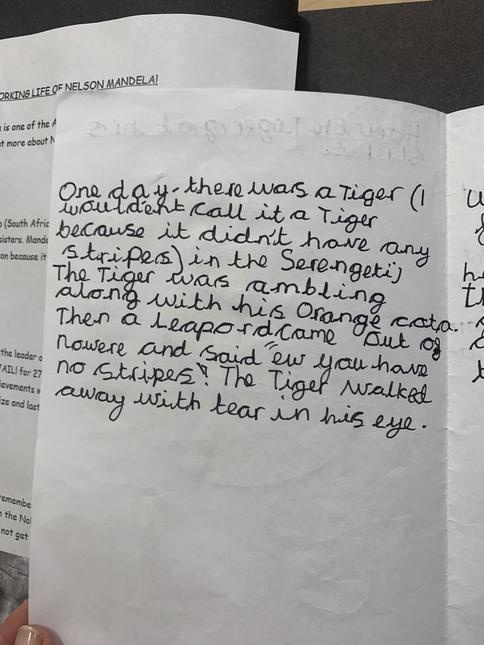 ORKING LIFE OF NELSON MANDELA!
is one of the A
t more about N
(South Afric
sisters. Mande
on because it
the leader o
TAIL! for 27
ievements w
ize and last
remembe
the No
not get
How the Tiger got his
One day there was a Tiger (I
wouldent call it a Tiger
because it didn't have any
stripers) in the Serengetij
The Tiger was ambling
along with his Orange cota.
Then a leapord came out of
nowere and said "ew you have
no stripes"! The Tiger walked
away with tear in his eye.